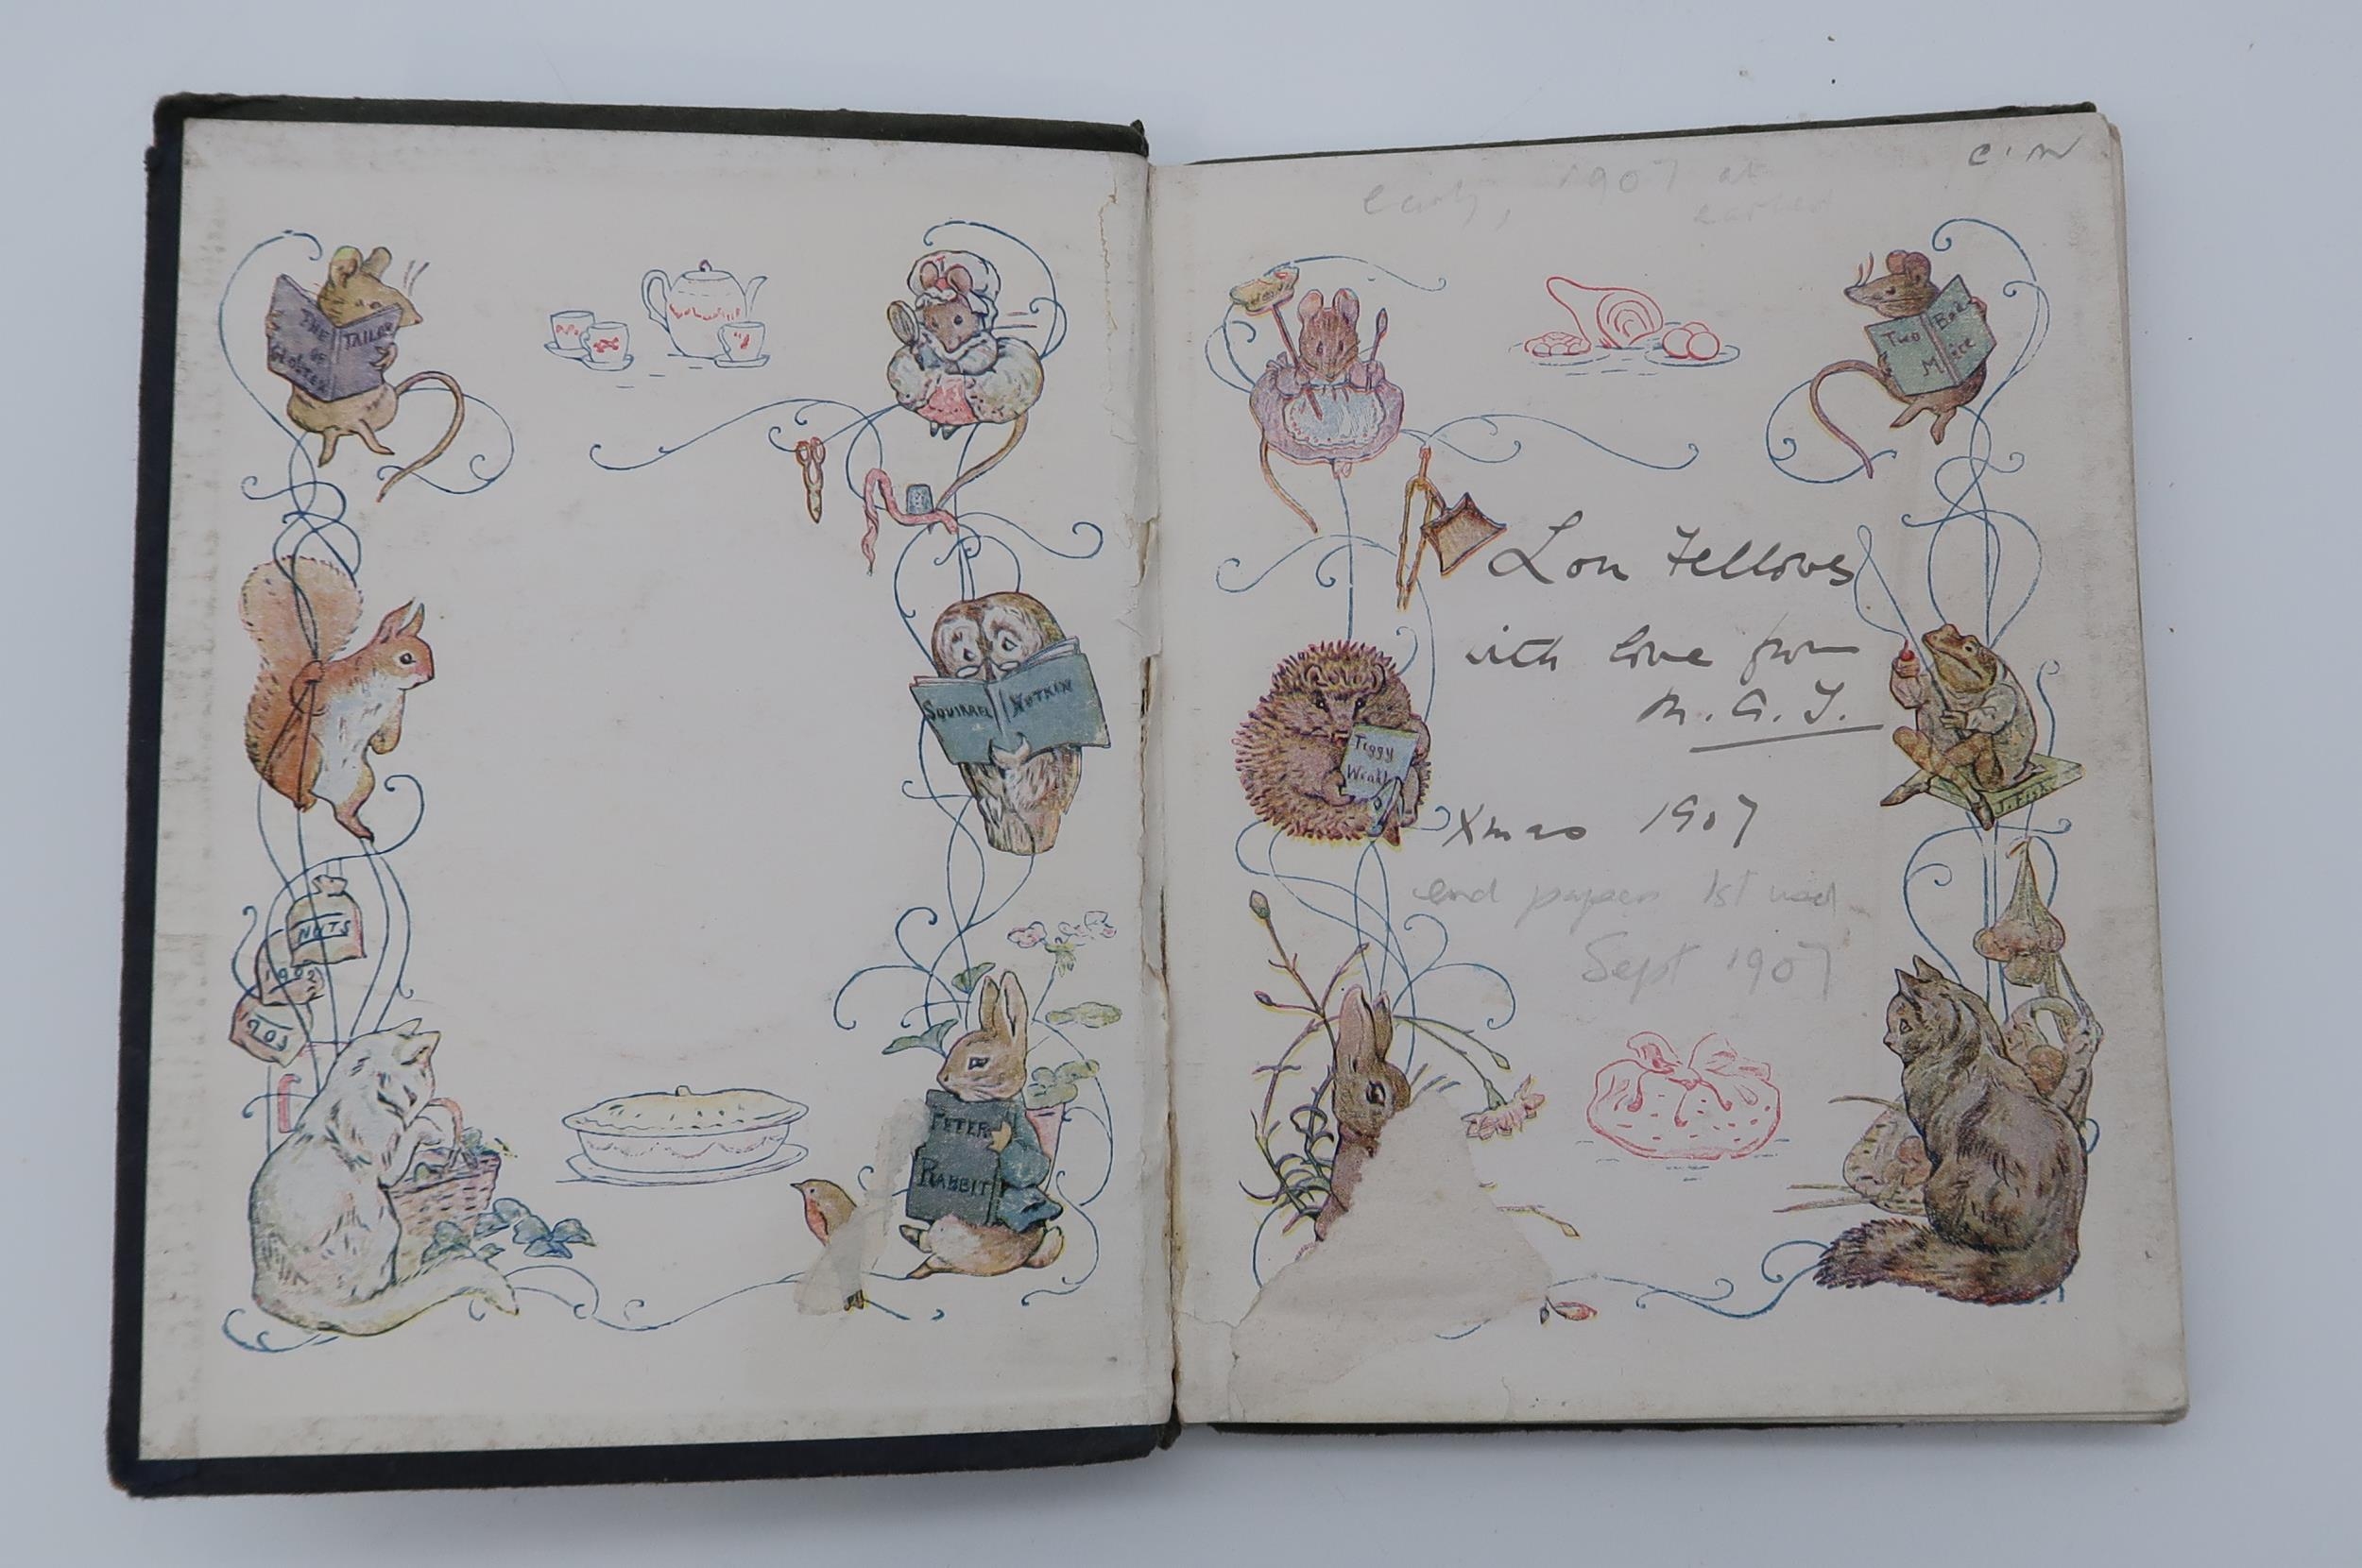 THE TAILOR
OF
GLOUCESTER
SQUIRREL NUTKIN
NUTS
1903
PETER
RABBIT
e.m
early, 1907 at
earliest
Two Bad
Mice
Lou Fellows
with love from
M. G. F.
Tiggy
Winkle
J. Fish.
Xmas 1907
end papers 1st used
Sept 1907